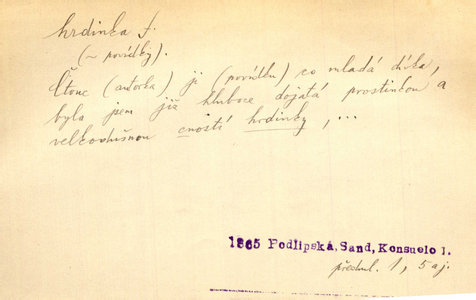 hrdinka f.
(~ povídky).
Čtouc (autorka) ji (povídku) co mladá dívka,
byla jsem již hluboce dojatá prostinkou a
velkodušnou cností hrdinky, ...
1865 Podlipská, Sand, Konsuelo 1.
předml. 1, 5 aj.